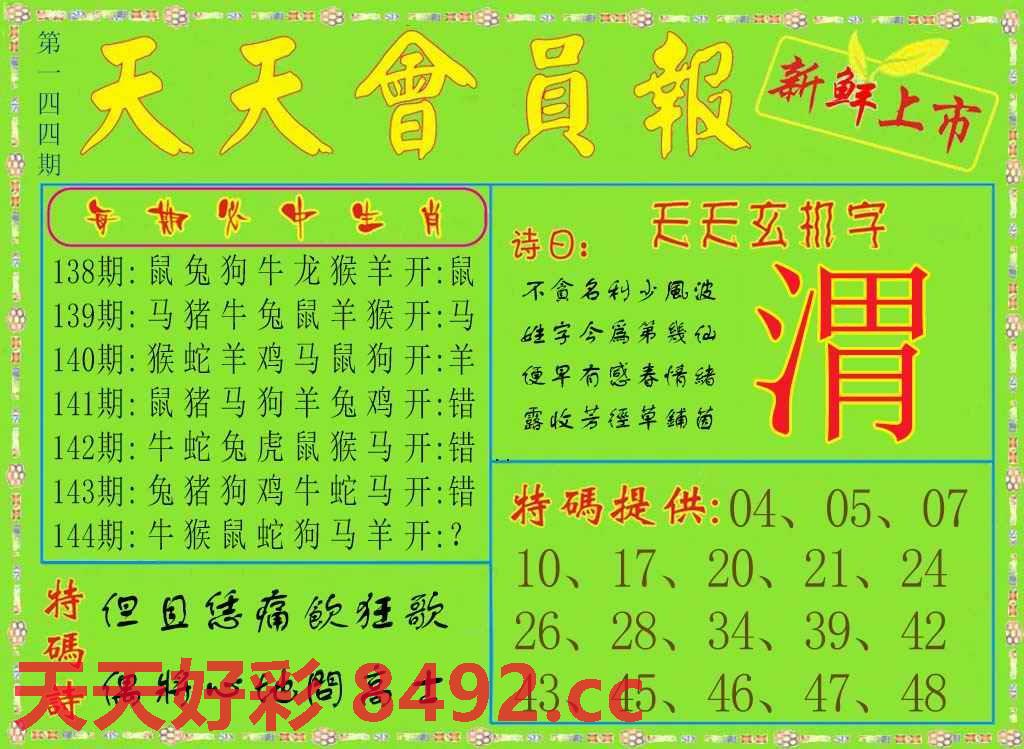 第一四四期
天天會員報
新鮮上市
每期必中生肖
138期: 鼠兔狗牛龙猴羊 开:鼠
139期: 马猪牛兔鼠羊猴 开:马
140期: 猴蛇羊鸡马鼠狗 开:羊
141期: 鼠猪马狗羊兔鸡 开:错
142期: 牛蛇兔虎鼠猴马 开:错
143期: 兔猪狗鸡牛蛇马 开:错
144期: 牛猴鼠蛇狗马羊 开:?
天天玄机字
诗曰:
不貪名利少風波
姓字今爲第幾仙
便早有感春情緒
露收芳徑草鋪茵
渭
特碼提供: 04、05、07
10、17、20、21、24
26、28、34、39、42
43、45、46、47、48
特碼詩
但且恁痛飲狂歌
偶將心地問高士
天天好彩 8492.cc